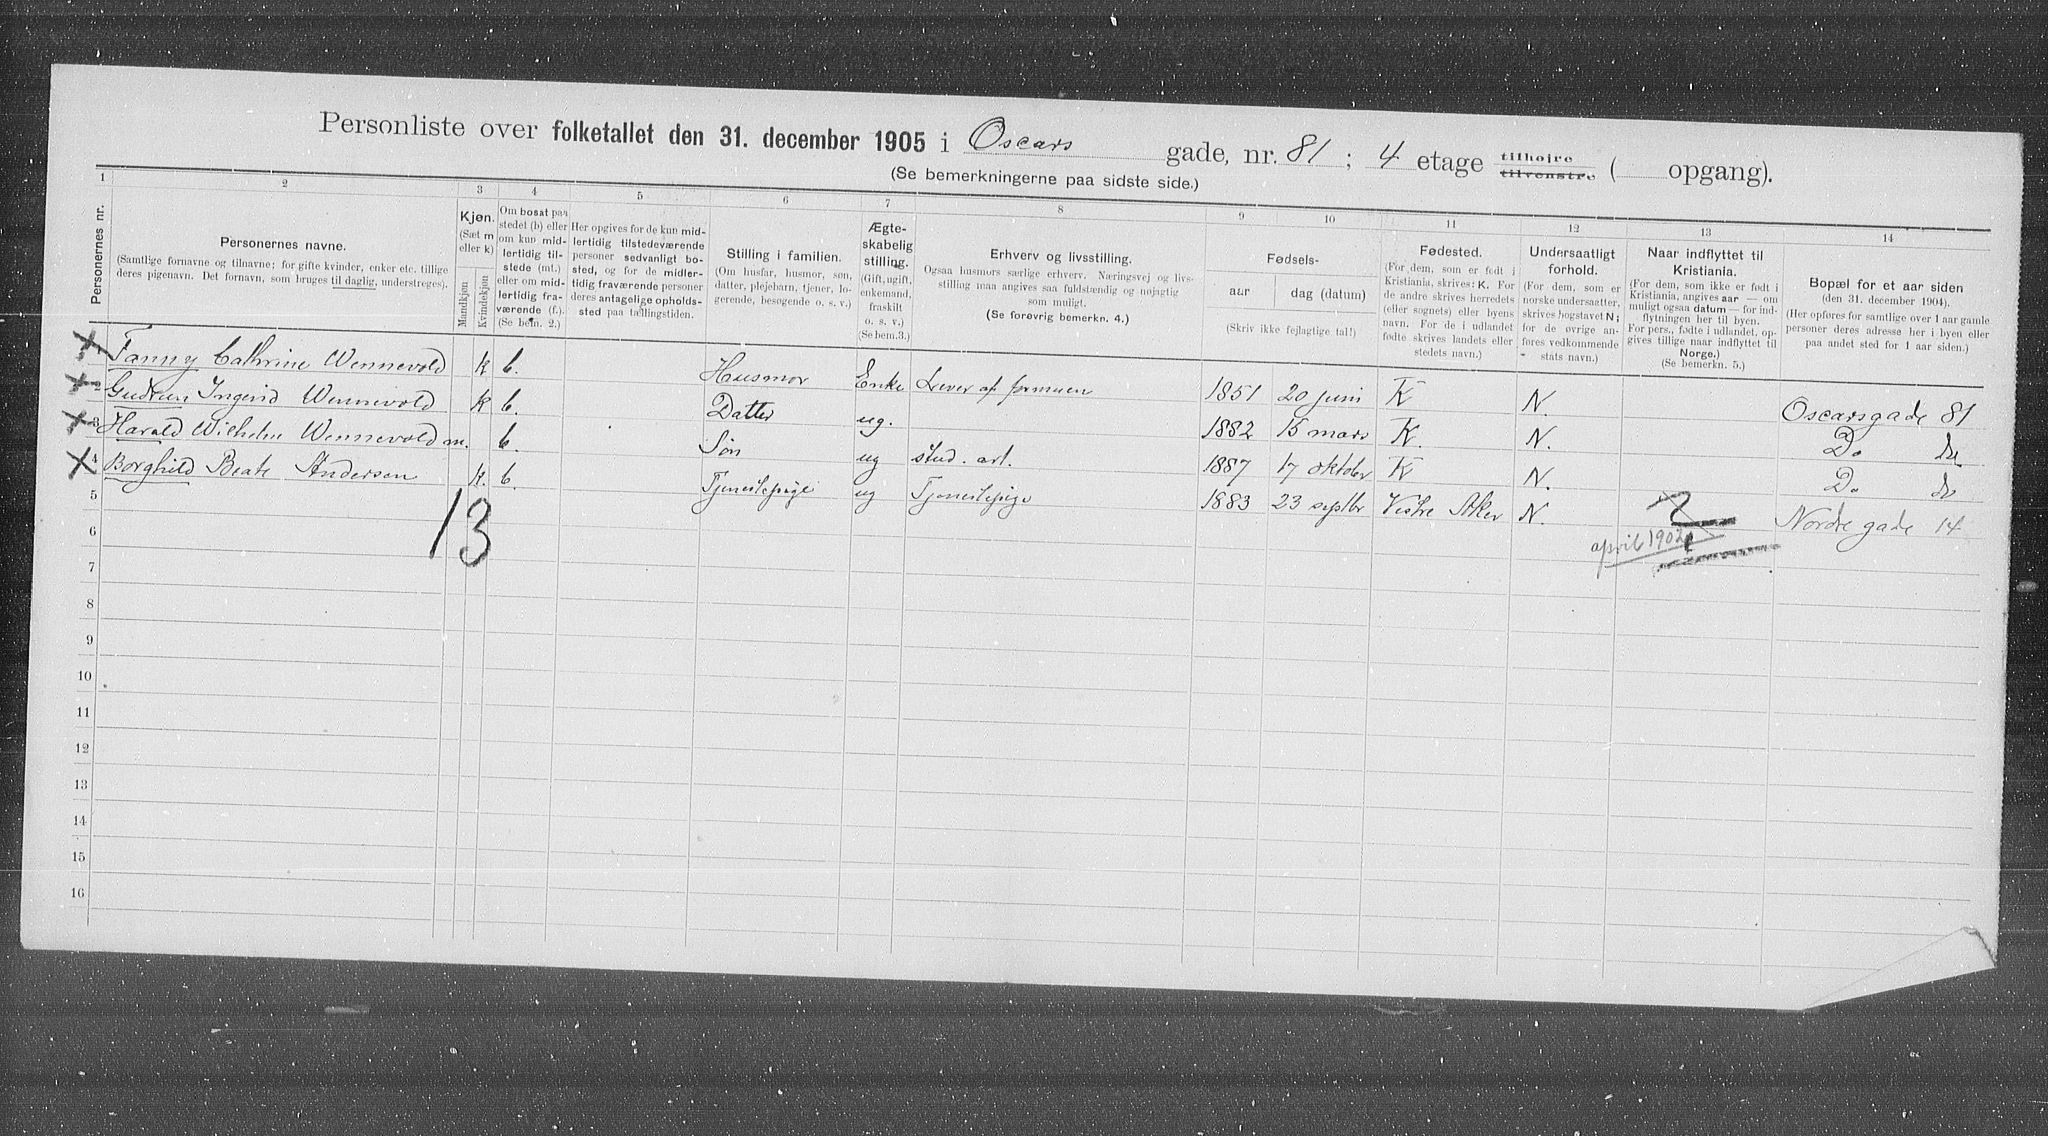 Personliste over folketallet den 31. december 1905 i Oscars gade, nr. 81 ; 4 etage tilhøire tilvenstre ( opgang).
(Se bemerkningerne paa sidste side.)
1 2 3 4 5 6 7 8 9 10 11 12 13 14
Personernes nr.
Personernes navne.
(Samtlige fornavne og tilnavne; for gifte kvinder, enker etc. tillige
deres pigenavn. Det fornavn, som bruges til daglig, understreges).
Kjøn.
(Sæt m
eller k)
Mandkjøn
Kvindekjøn
Om bosat paa
stedet (b) eller
om kun mid-
lertidig til-
stede (mt.)
eller om mid-
lertidig fra-
værende (f.).
(Se bem. 2.)
Her opgives for de kun mid-
lertidig tilstedeværende
personer sedvanligt bo-
sted, og for de midler-
tidig fraværende personer
deres antagelige opholds-
sted paa tællingstiden.
Stilling i familien.
(Om husfar, husmor, søn,
datter, plejebarn, tjener, lo-
gerende, besøgende o. s. v.)
Ægte-
skabelig
stilling.
(Gift, ugift,
enkemand,
fraskilt
o. s. v.)
(Se bem. 3.)
Erhverv og livsstilling.
Ogsaa husmors særlige erhverv. Næringsvej og livs-
stilling maa angives saa fuldstændig og nøjagtig
som muligt.
(Se forøvrig bemerkn. 4.)
Fødsels-
aar
dag (datum)
(Skriv ikke fejlagtige tal!)
Fødested.
(For dem, som er født i
Kristiania, skrives: K. For
de andre skrives herredets
(eller sognets) eller byens
navn. For de i udlandet
fødte skrives landets eller
stedets navn.)
Undersaatligt
forhold.
(For dem, som er
norske undersaatter,
skrives bogstavet N;
for de øvrige an-
føres vedkommende
stats navn.)
Naar indflyttet til
Kristiania.
(For dem, som ikke er født i
Kristiania, angives aar — om
muligt ogsaa datum — for ind-
flytningen her til byen.
For pers., fødte i udlandet, op-
gives tillige naar indflyttet til
Norge.)
(Se bemerkn. 5.)
Bopæl for et aar siden
(den 31. december 1904).
(Her opføres for samtlige over 1 aar gamle
personer deres adresse her i byen eller
paa andet sted for 1 aar siden.)
1 Fanny Cathrine Wennevold k b. Husmor Enke Lever af formuen 1851 20 juni K N. Oscarsgade 81
2 Gudrun Ingerid Wennevold k b. Datter ug. 1882 15 mars K N. Do do
3 Harald Wilhelm Wennevold m. b. Søn ug stud. art. 1887 17 oktober K N. Do do
4 Borghild Beate Andersen k. b. Tjenestepige ug Tjenestepige 1883 23 septbr Vestre Aker N. april 1902 Nordre gade 14
13
5
6
7
8
9
10
11
12
13
14
15
16